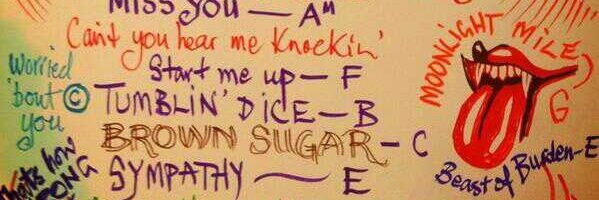 MISS YOU — Aᴹ
Can't you hear me Knockin'
Start me up — F
Worried 'bout you ©
TUMBLIN' DICE — B
BROWN SUGAR — C
SYMPATHY — E
that's how
MOONLIGHT MILE
G
Beast of Burden — E